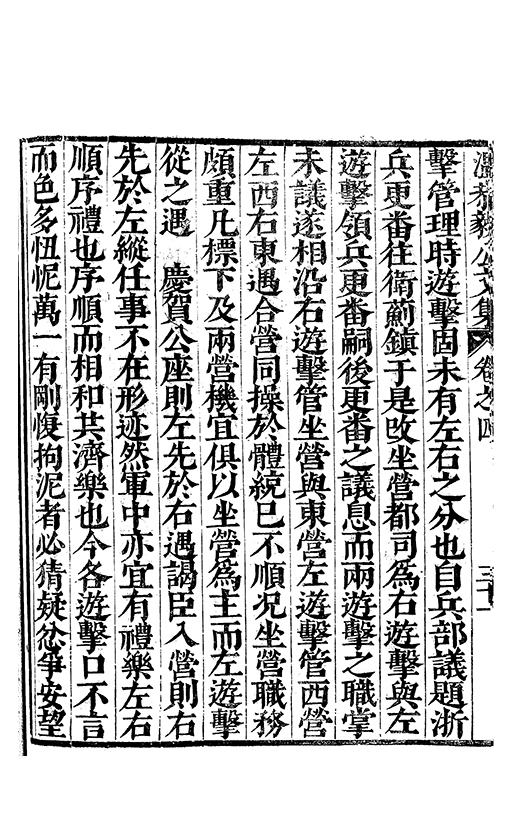 溫恭毅公文集 卷之四 三十一
擊管理時遊擊固未有左右之分也自兵部議題浙
兵更番往衛薊鎮于是改坐營都司為右遊擊與左
遊擊領兵更番嗣後更番之議息而兩遊擊之職掌
未議遂相沿右遊擊管坐營與東營左遊擊管西營
左西右東遇合營同操於體統已不順况坐營職務
頗重凡標下及兩營機宜俱以坐營為主而左遊擊
從之遇 慶賀公座則左先於右遇謁臣入營則右
先於左縱任事不在形迹然軍中亦宜有禮樂左右
順序禮也序順而相和共濟樂也今各遊擊口不言
而色多忸怩萬一有剛愎拘泥者必猜疑忿爭安望